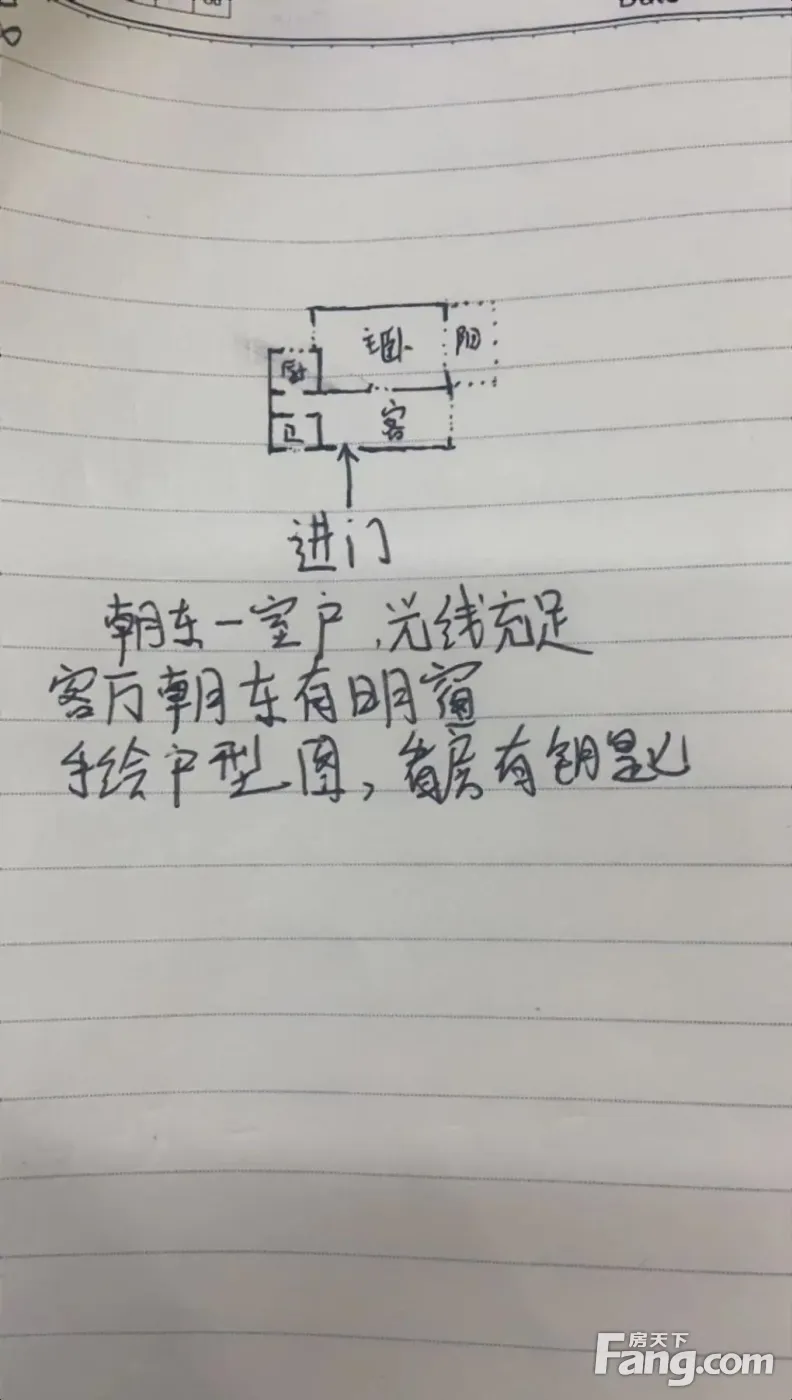 Date
主卧 阳
厨
卫 客
进门
朝东一室户,光线充足
客厅朝东有明窗
手绘户型图,看房有钥匙
房天下
Fang.com